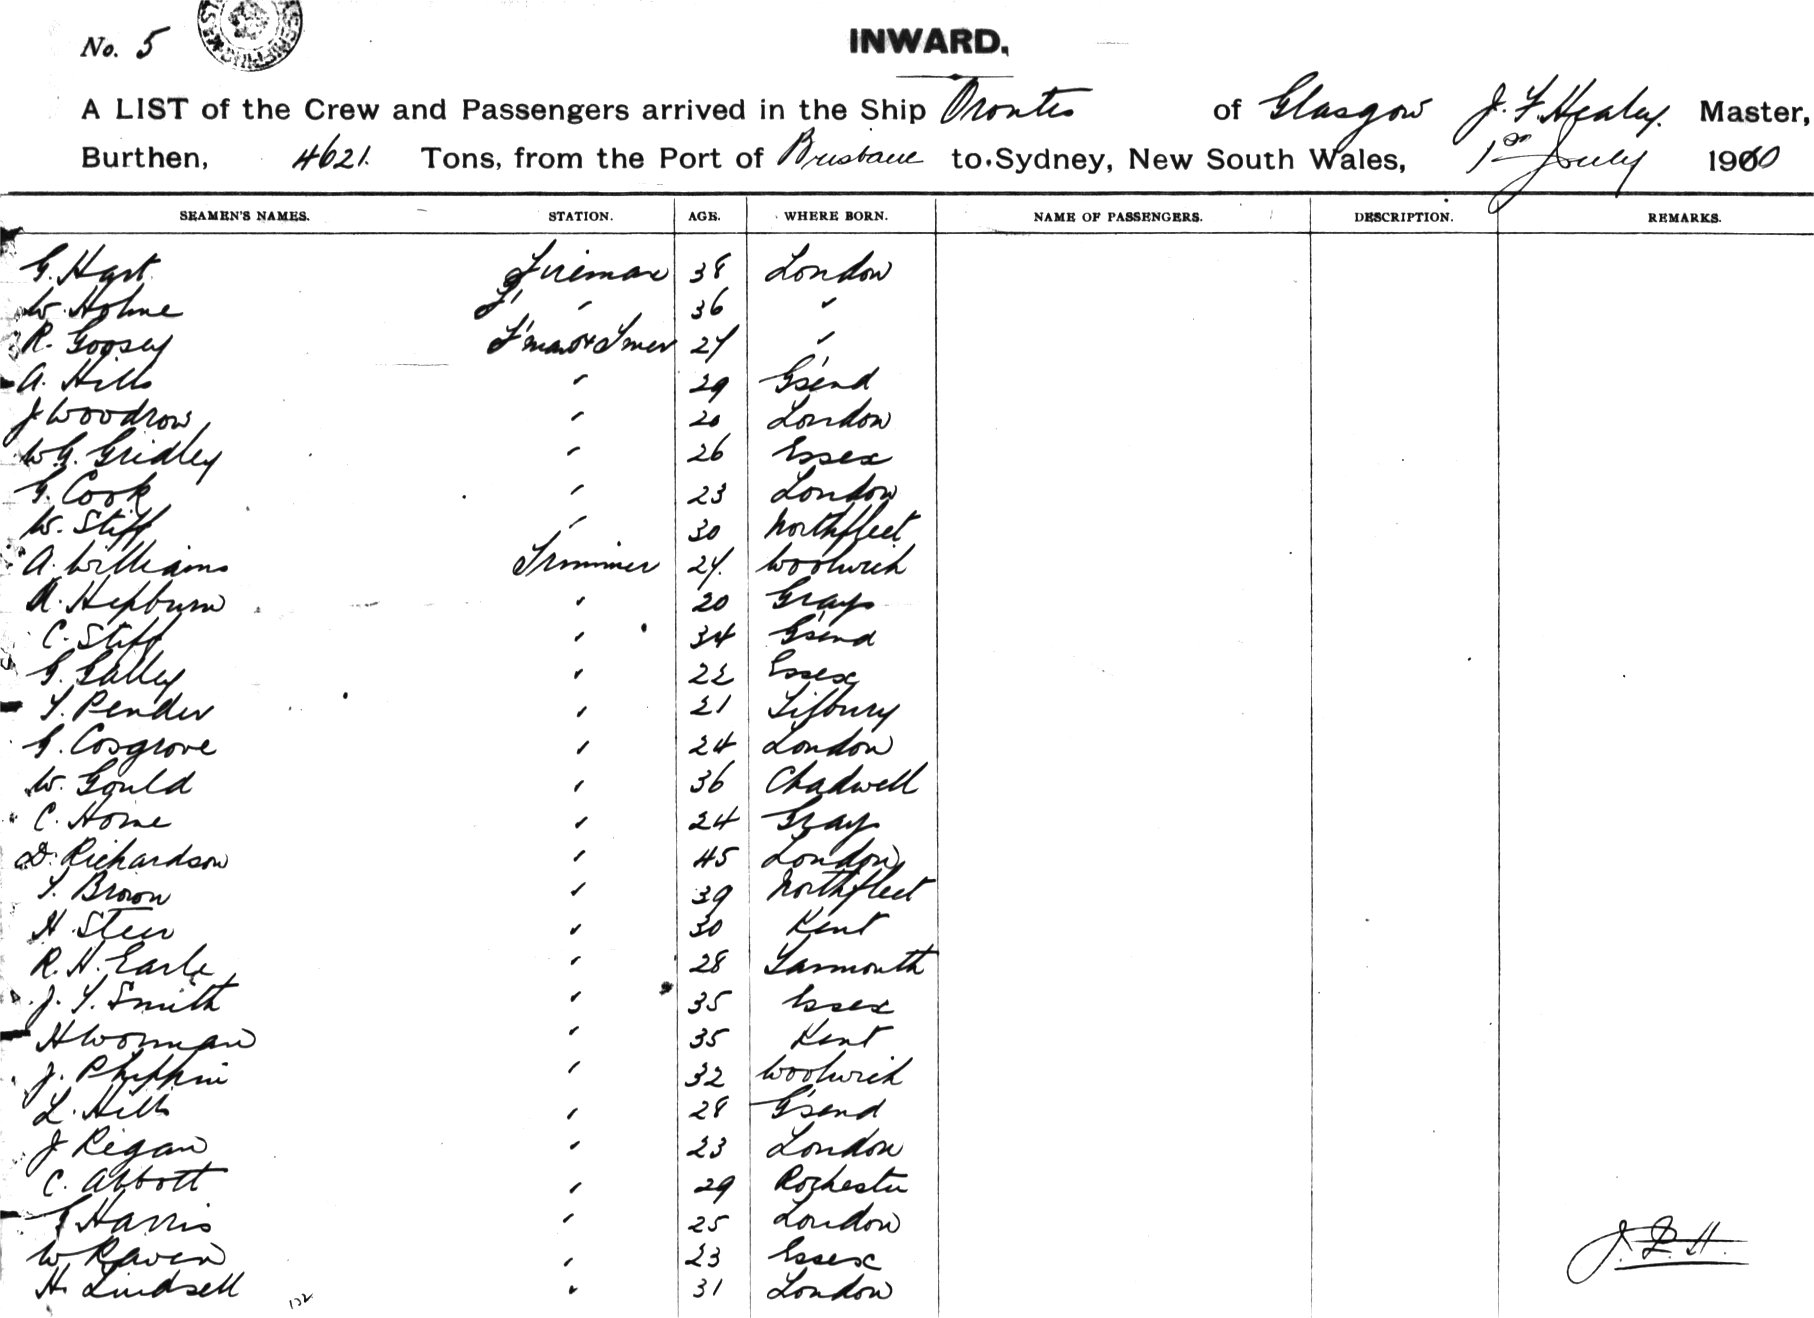 No. 5
INWARD.
A LIST of the Crew and Passengers arrived in the Ship Orontes of Glasgow J. F. Healey. Master,
Burthen, 4621. Tons, from the Port of Brisbane to Sydney, New South Wales, 1st July 1910
SEAMEN'S NAMES. STATION. AGE. WHERE BORN. NAME OF PASSENGERS. DESCRIPTION. REMARKS.
G. Hart Fireman 38 London
W. Holme F' " 36 "
R. Goosey F'man & Tmer 27 "
A. Hills " 29 G'send
J Woodrow " 20 London
W G. Gridley " 26 Essex
G. Cook " 23 London
W. Stiff " 30 Northfleet
A. Williams Trimmer 27. Woolwich
A. Hepburn " 20 Grays
C. Stiff " 34 G'send
G. Galley " 22 Essex
T. Pender " 21 Tilbury
G. Cosgrove " 24 London
W. Gould " 36 Chadwell
C. Horne " 24 Grays
D. Richardson " 45 London
T. Brown " 39 Northfleet
H. Steer " 30 Kent
R. H. Earle " 28 Yarmouth
J. T. Smith " 35 Essex
H Worman " 35 Kent
J. Phippin " 32 Woolwich
L. Hills " 28 G'send
J Regan " 23 London
C. Abbott " 29 Rochester
G Harris " 25 London
W Raven " 23 Essex
H. Lindsell " 31 London
J. F. H.
132